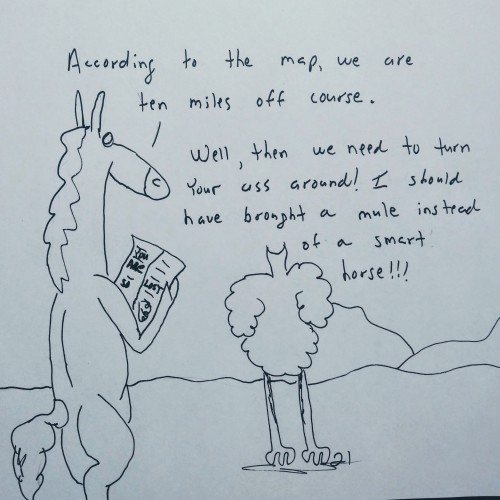 According to the map, we are
ten miles off course.
Well, then we need to turn
your ass around! I should
have brought a mule instead
of a smart
horse!!!
YOU
ARE
SO
LOST
21